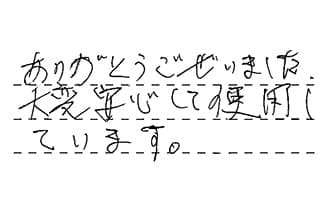 ありがとうございました.
大変安心して使用し
ています。